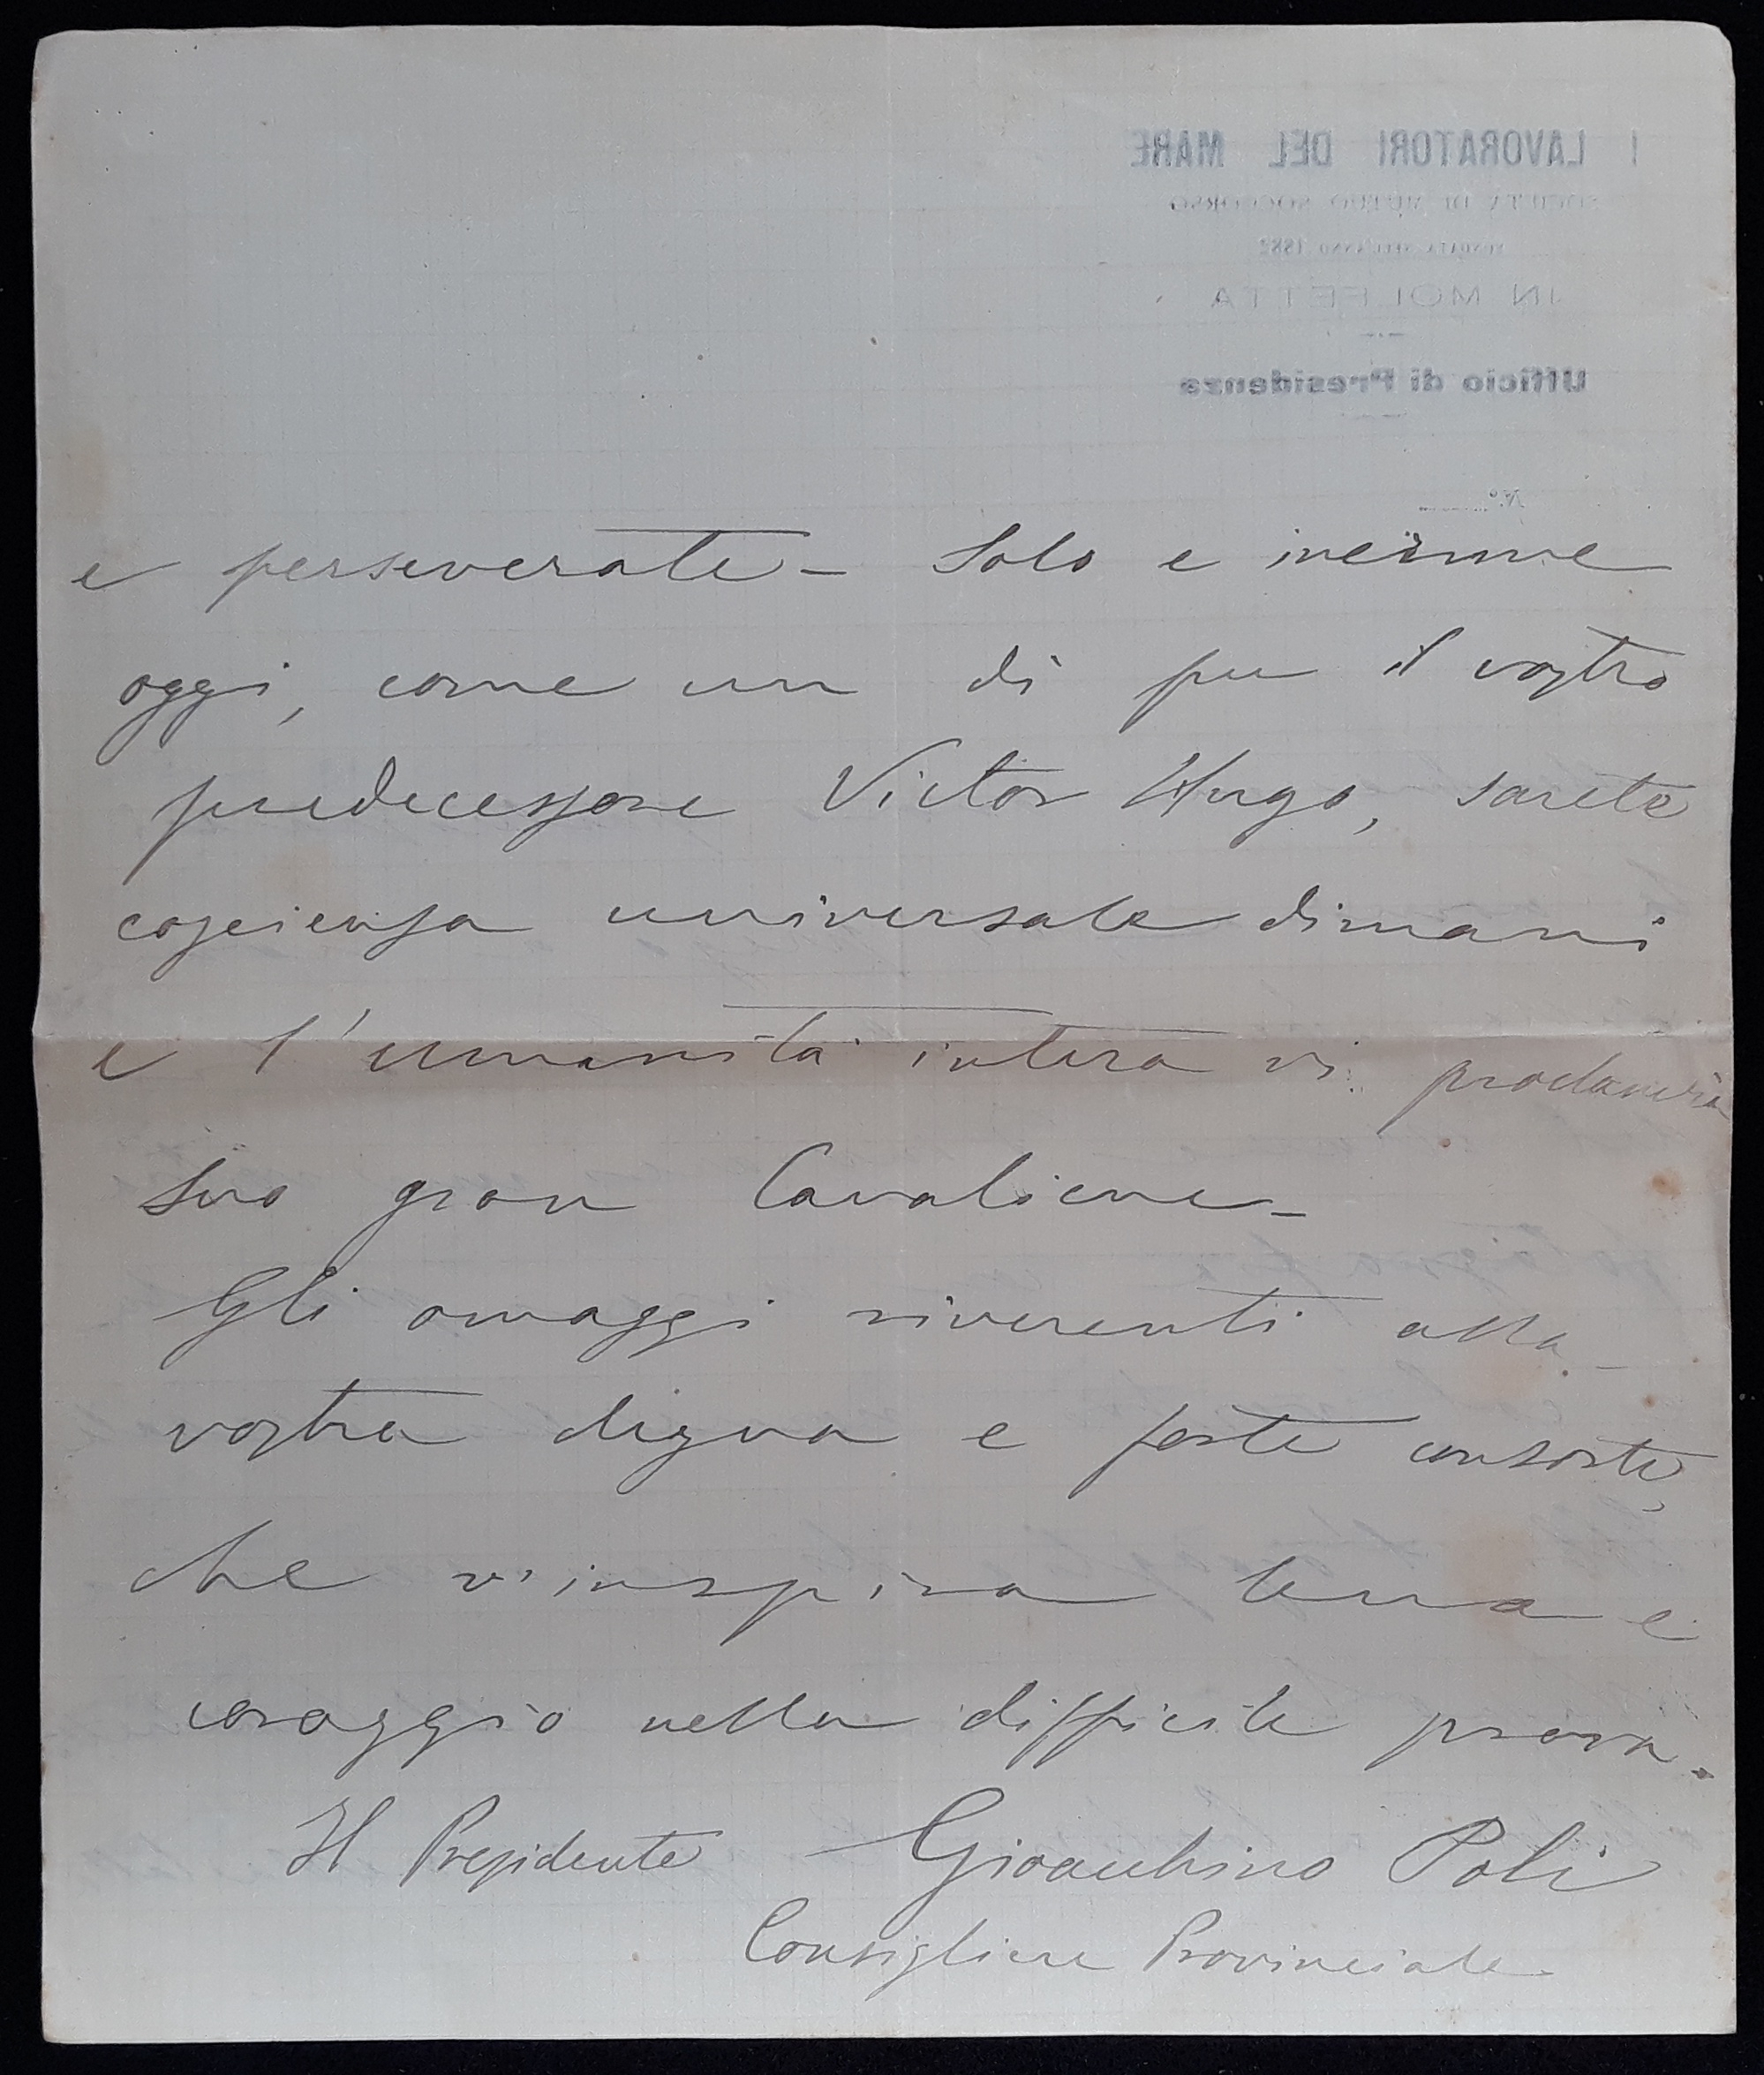 I LAVORATORI DEL MARE
SOCIETÀ DI MUTUO SOCCORSO
FONDATA NELL'ANNO 1882
IN MOLFETTA
Ufficio di Presidenza
N.º
e perseverate – Solo e inerme
oggi, come un dì fu il vostro
predecessore Victor Hugo, sarete
coscienza universale dimani
e l'umanità intera vi proclamerà
suo gran Cavaliere –
Gli omaggi riverenti alla
vostra degna e forte consorte,
che v'inspira lena e
coraggio nella difficile prova.
Il Presidente Gioacchino Poli
Consigliere Provinciale